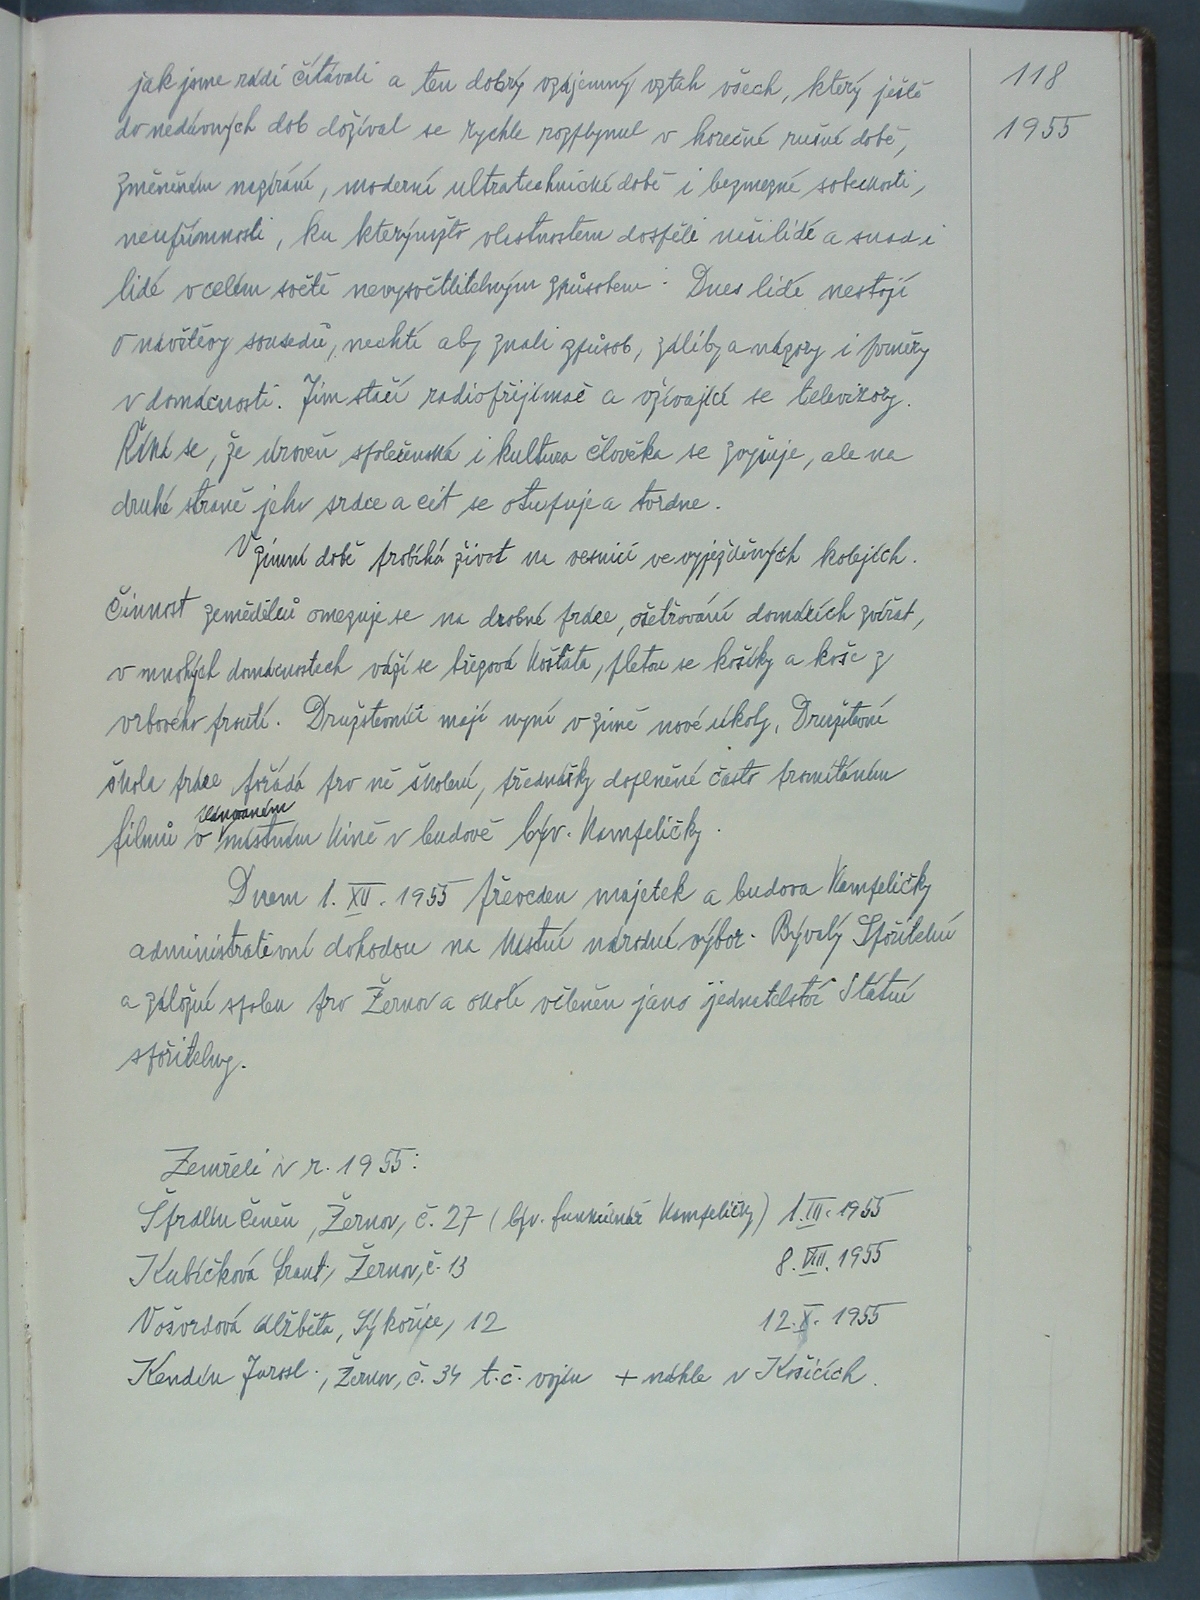 118
1955
jak jsme rádi čítávali a ten dobrý vzájemný vztah všech, který ještě
do nedávných dob dožíval se rychle rozplynul v horečné rušné době,
změněném nazírání, moderní ultratechnické době i bezmezné sobeckosti,
neupřímnosti, ku kterýmžto vlastnostem dospěli naši lidé a snad i
lidé v celém světě nevysvětlitelným způsobem. Dnes lidé nestojí
o návštěvy sousedů, nechtí aby znali způsob, záliby a názory i poměry
v domácnosti. Jim stačí radiopřijimač a vžívající se televizory.
Říká se, že úroveň společenská i kultura člověka se zvyšuje, ale na
druhé straně jeho srdce a cit se otupuje a tvrdne.
V zimní době probíhá život na vesnici ve vyježděných kolejích.
Činnost zemědělců omezuje se na drobné práce, ošetřování domácích zvířat,
v mnohých domácnostech váží se březová košťata, pletou se košíky a koše z
vrbového proutí. Družstevníci mají nyní v zimě nové úkoly. Družstevní
škola práce pořádá pro ně školení, přednášky doplněné často promítáním
filmů v místním kině v budově býv. Kampeličky.
Dnem 1. XII. 1955 převeden majetek a budova Kampeličky
administrativní dohodou na Místní národní výbor. Bývalý Spořitelní
a záložní spolek pro Žernov a okolí včleněn jako jednatelství Státní
spořitelny.
Zemřeli v r. 1955:
Šfrdlín Čeněk, Žernov, č. 27 (býv. funkcionář Kampeličky) 1. III. 1955
Kubíčková Frant., Žernov, č. 13 8. VIII. 1955
Vošvrdová Alžběta, Sýkořice, 12 12. X. 1955
Kendík Jarosl., Žernov, č. 34 t. č. vojín + náhle v Košicích.